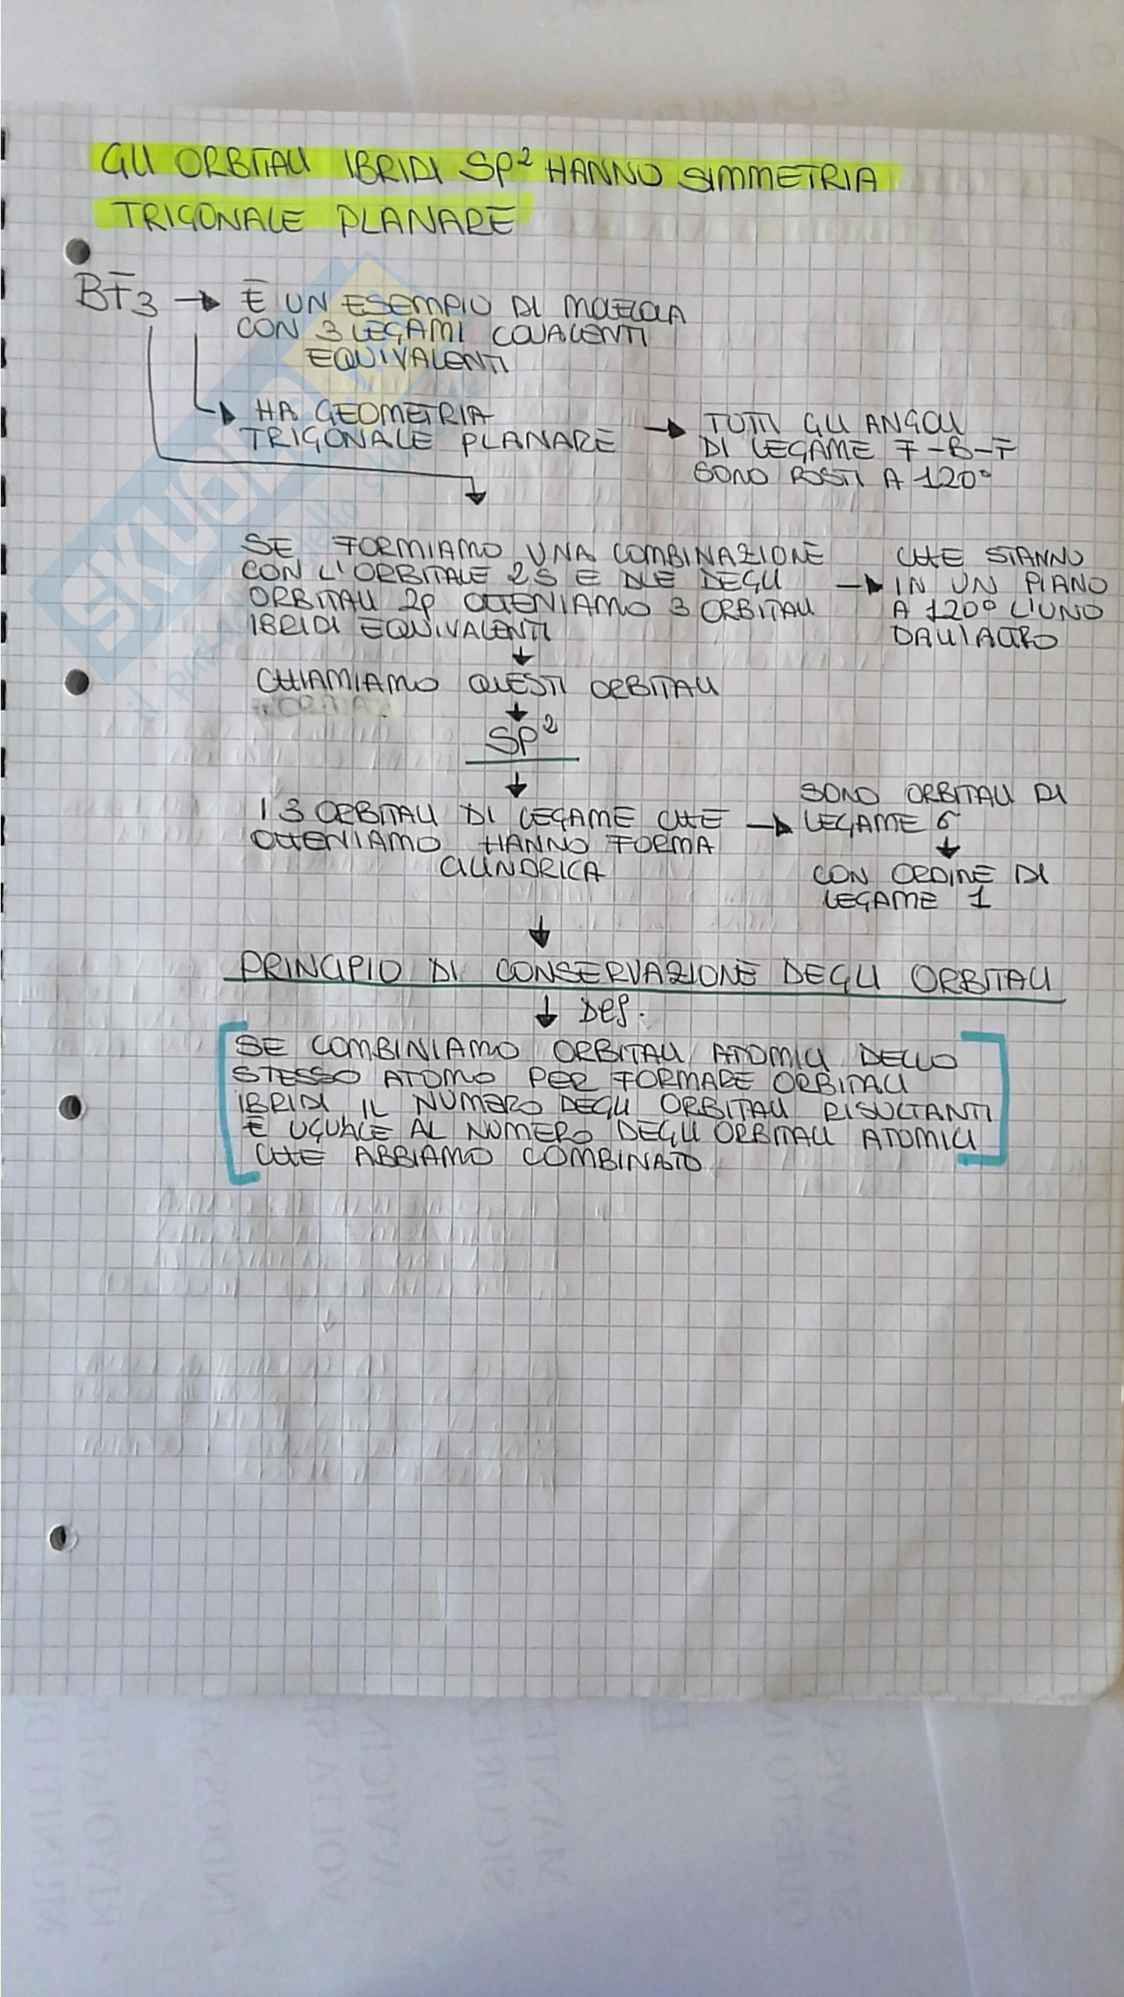 GLI ORBITALI IBRIDI SP² HANNO SIMMETRIA
TRIGONALE PLANARE
BF3 → È UN ESEMPIO DI MOLECOLA
CON 3 LEGAMI COVALENTI
EQUIVALENTI
HA GEOMETRIA
TRIGONALE PLANARE →
TUTTI GLI ANGOLI
DI LEGAME F-B-F
SONO POSTI A 120°
SE FORMIAMO UNA COMBINAZIONE
CON L'ORBITALE 2S E DUE DEGLI
ORBITALI 2p OTTENIAMO 3 ORBITALI
IBRIDI EQUIVALENTI
→ CHE STANNO
IN UN PIANO
A 120° L'UNO
DALL'ALTRO
CHIAMIAMO QUESTI ORBITALI
SP²
I 3 ORBITALI DI LEGAME CHE
OTTENIAMO HANNO FORMA
CILINDRICA
→ SONO ORBITALI DI
LEGAME σ
CON ORDINE DI
LEGAME 1
PRINCIPIO DI CONSERVAZIONE DEGLI ORBITALI
↓ Def.
SE COMBINIAMO ORBITALI ATOMICI DELLO
STESSO ATOMO PER FORMARE ORBITALI
IBRIDI, IL NUMERO DEGLI ORBITALI RISULTANTI
È UGUALE AL NUMERO DEGLI ORBITALI ATOMICI
CHE ABBIAMO COMBINATO